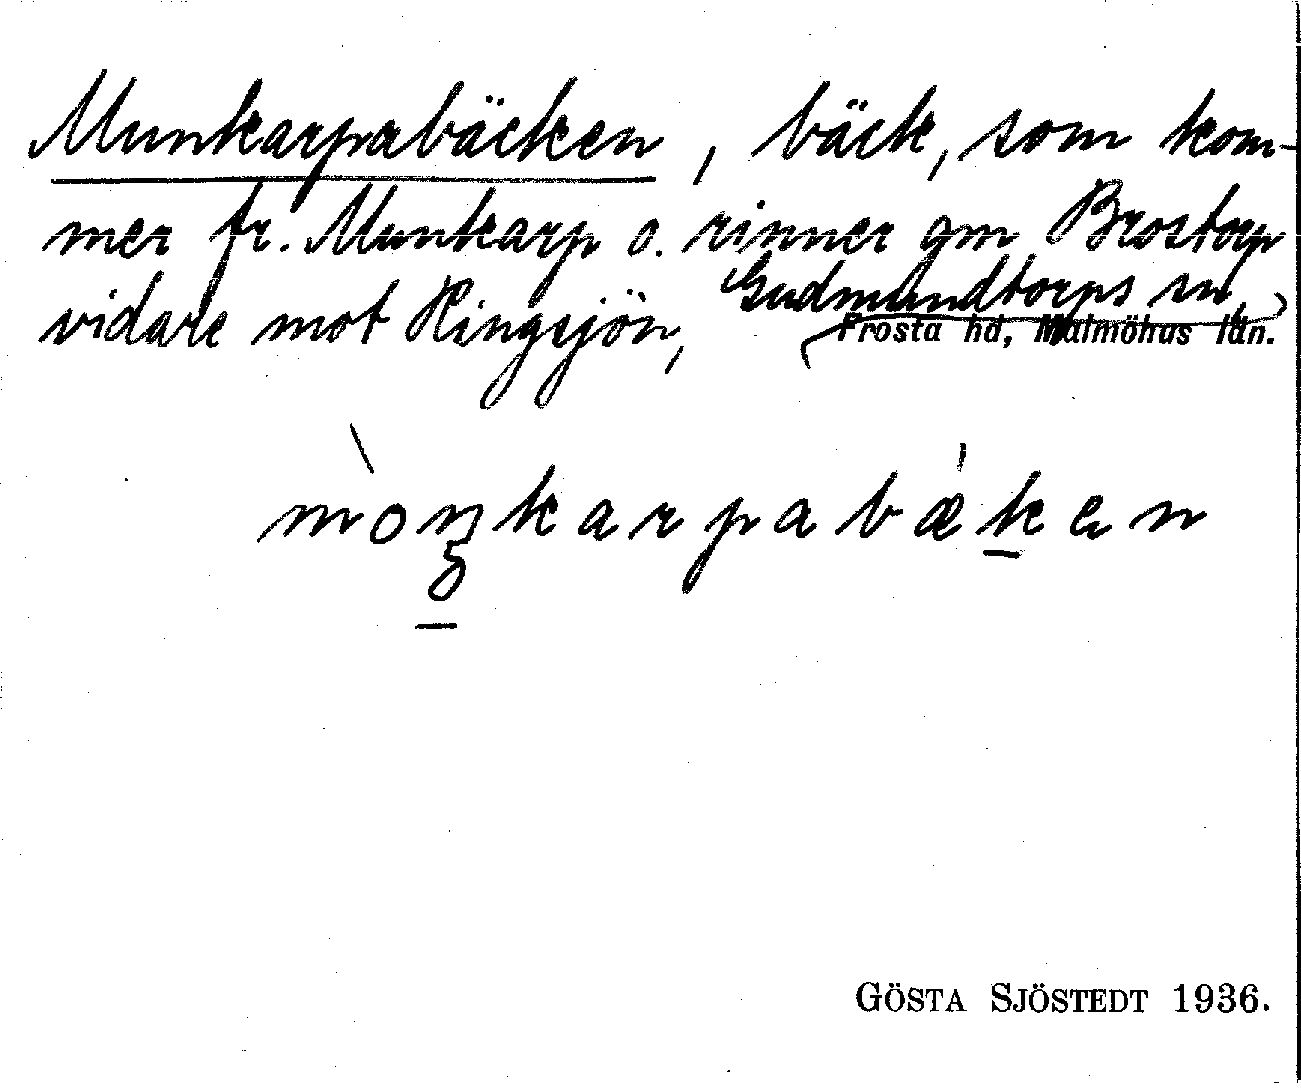 Munkarpabäcken, bäck, som kom-
mer fr. Munkarp o. rinner gm Brostorp
Gudmundtorps sn,
vidare mot Ringsjön,
Frosta hd, Malmöhus län.
moŋkarpabæken
GÖSTA SJÖSTEDT 1936.